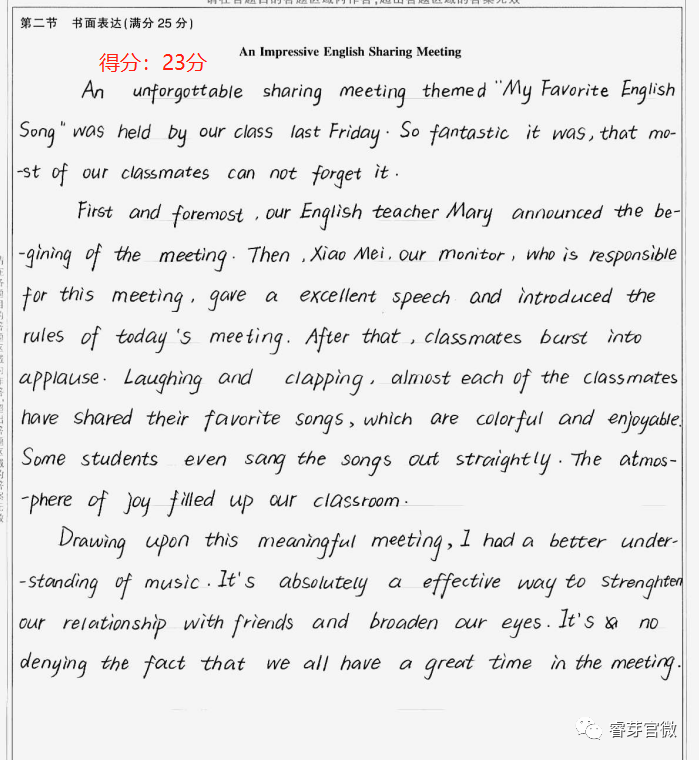 第二节 书面表达(满分25分)
An Impressive English Sharing Meeting
得分：23分
An unforgottable sharing meeting themed "My Favorite English
Song" was held by our class last Friday. So fantastic it was, that mo-
-st of our classmates can not forget it.
First and foremost, our English teacher Mary announced the be-
-gining of the meeting. Then, Xiao Mei, our monitor, who is responsible
for this meeting, gave a excellent speech and introduced the
rules of today's meeting. After that, classmates burst into
applause. Laughing and clapping, almost each of the classmates
have shared their favorite songs, which are colorful and enjoyable.
Some students even sang the songs out straightly. The atmos-
-phere of joy filled up our classroom.
Drawing upon this meaningful meeting, I had a better under-
-standing of music. It's absolutely a effective way to strenghten
our relationship with friends and broaden our eyes. It's no
denying the fact that we all have a great time in the meeting.
睿芽官微